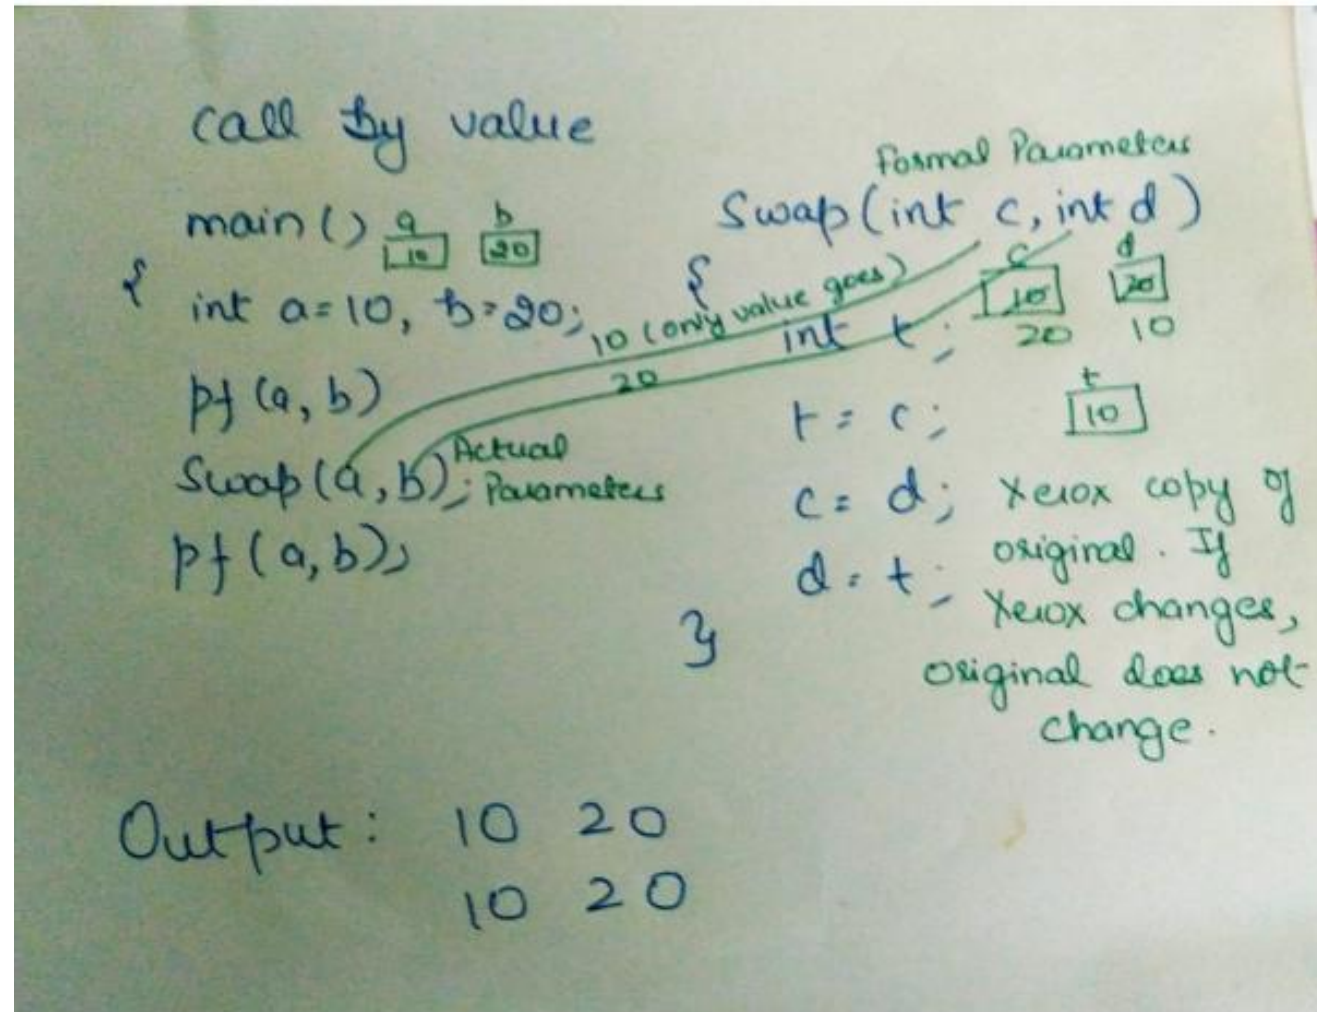 call by value
main()
a b
10 20
{
int a=10, b=20;
pf (a, b)
Swap(a, b);
Actual
Parameters
pf(a, b);
10 (only value goes)
20
Formal Parameters
Swap(int c, int d)
{
c d
10 20
20 10
int t;
t
10
t = c;
c = d;
d = t;
}
Xerox copy of
original. If
Xerox changes,
original does not
change.
Output: 10 20
10 20